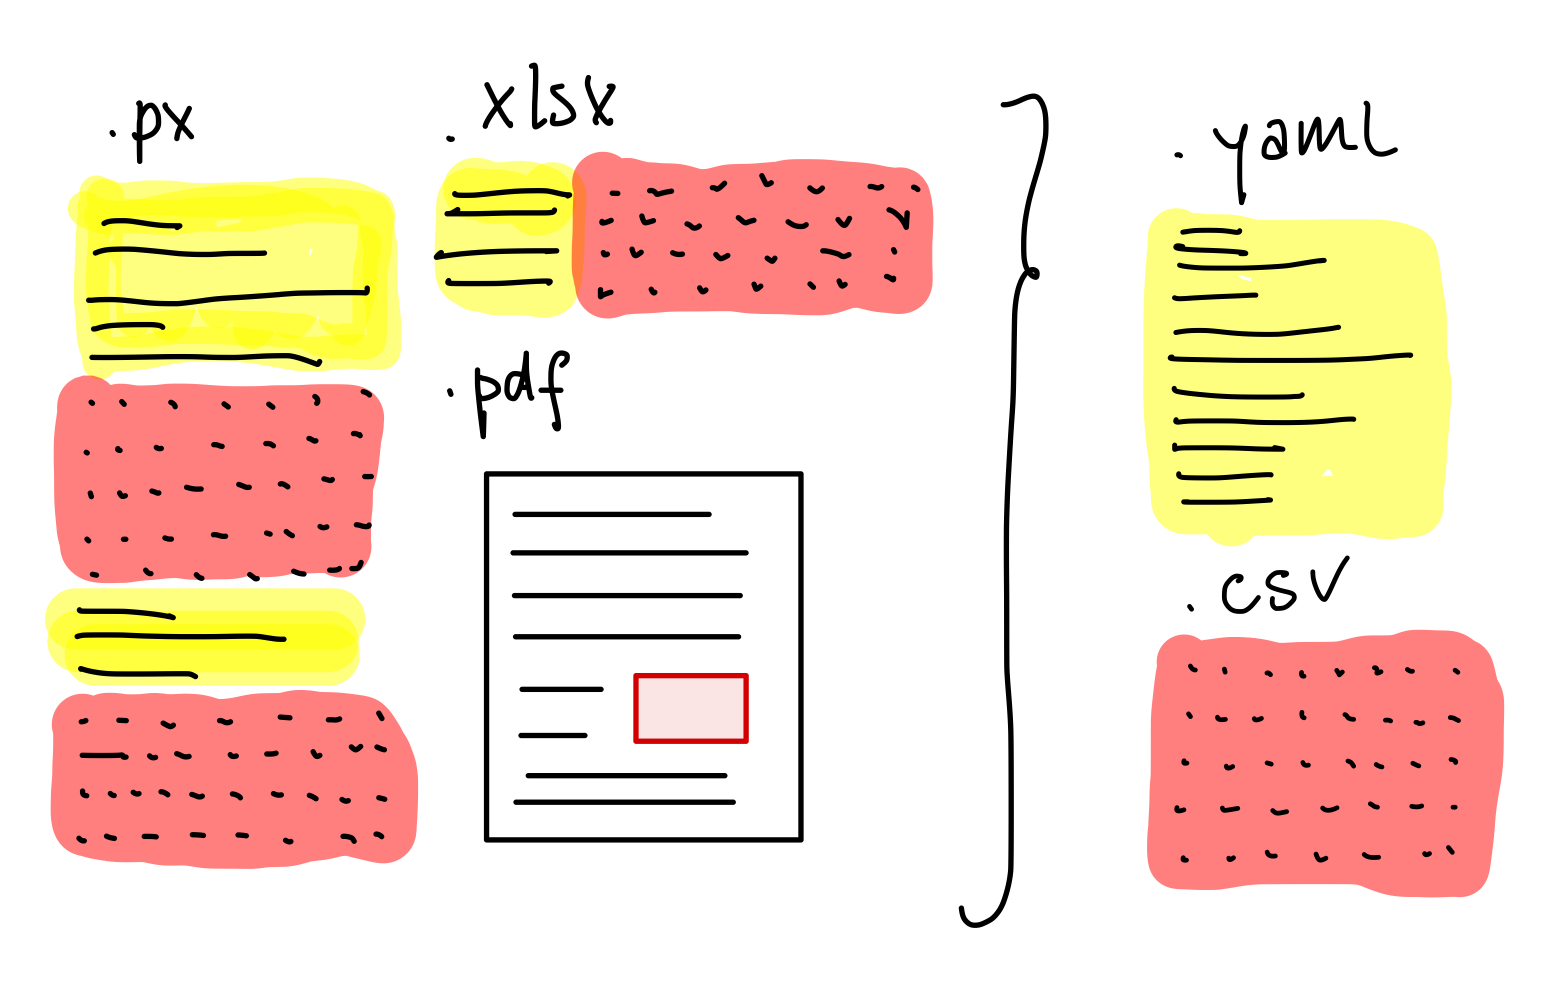 .px
.xlsx
.pdf
.yaml
.csv